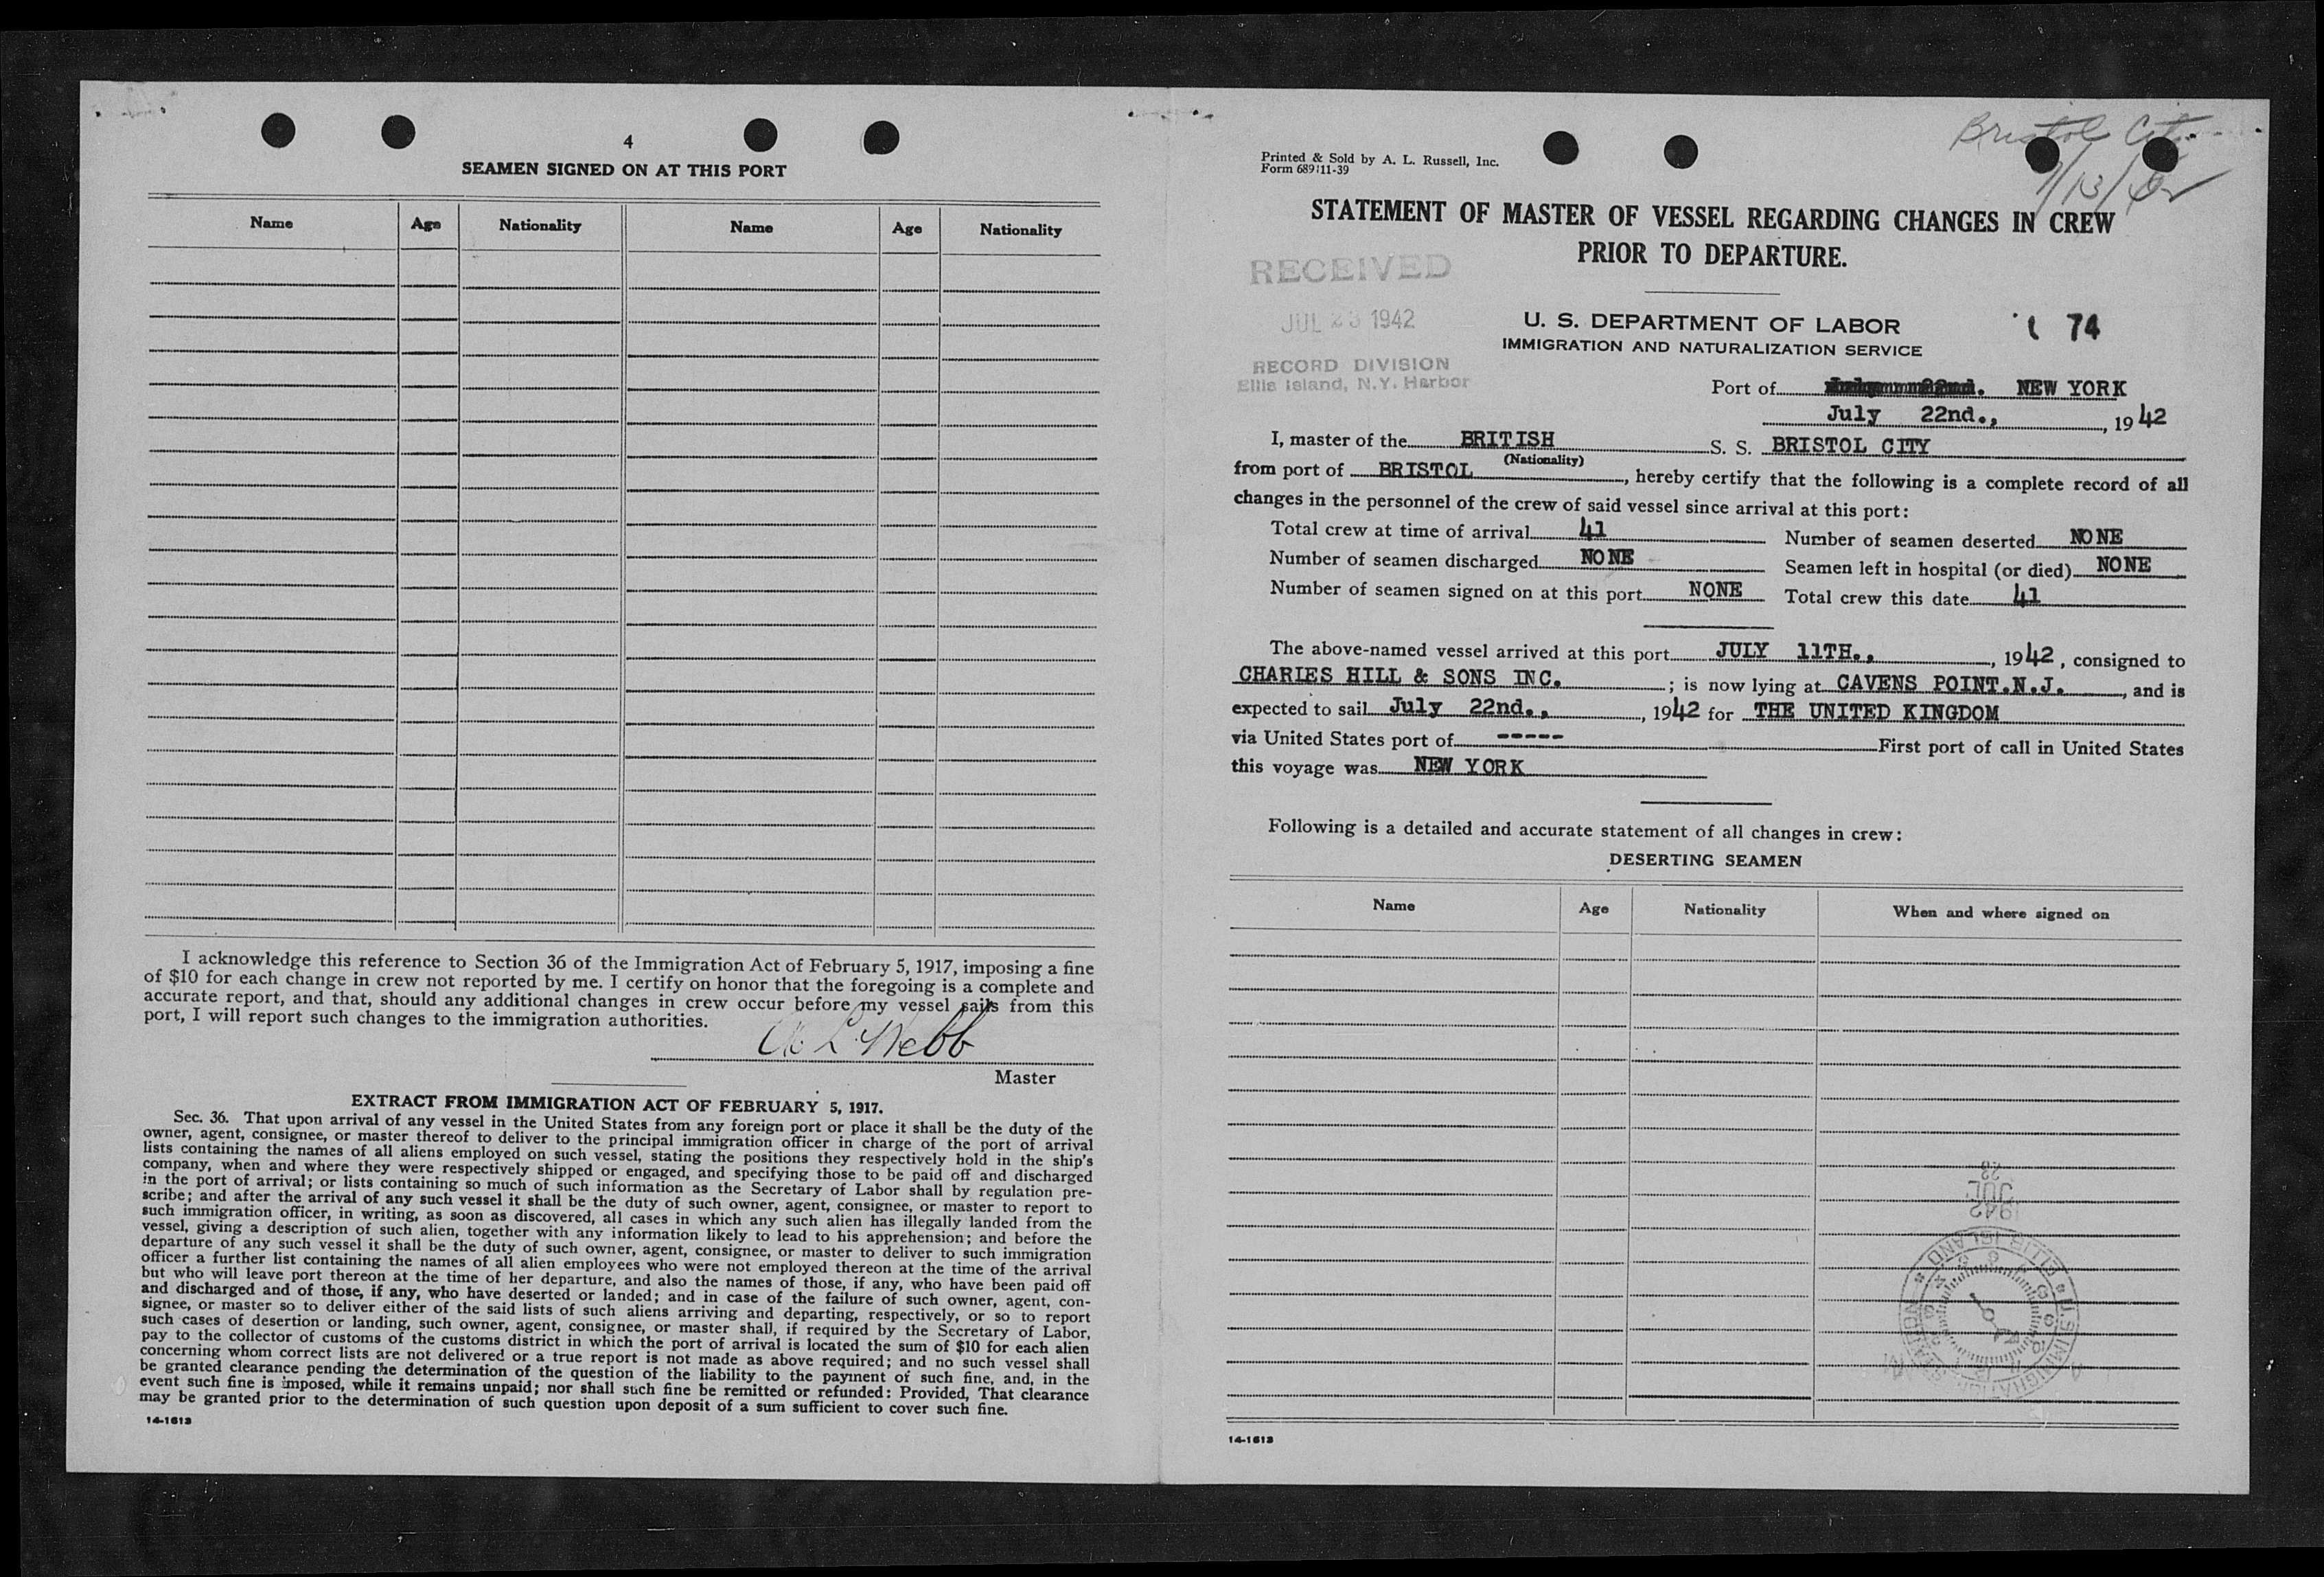 4
SEAMEN SIGNED ON AT THIS PORT
Name Age Nationality Name Age Nationality
I acknowledge this reference to Section 36 of the Immigration Act of February 5, 1917, imposing a fine
of $10 for each change in crew not reported by me. I certify on honor that the foregoing is a complete and
accurate report, and that, should any additional changes in crew occur before my vessel sails from this
port, I will report such changes to the immigration authorities.
L. Webb
Master
EXTRACT FROM IMMIGRATION ACT OF FEBRUARY 5, 1917.
Sec. 36. That upon arrival of any vessel in the United States from any foreign port or place it shall be the duty of the
owner, agent, consignee, or master thereof to deliver to the principal immigration officer in charge of the port of arrival
lists containing the names of all aliens employed on such vessel, stating the positions they respectively hold in the ship's
company, when and where they were respectively shipped or engaged, and specifying those to be paid off and discharged
in the port of arrival; or lists containing so much of such information as the Secretary of Labor shall by regulation pre-
scribe; and after the arrival of any such vessel it shall be the duty of such owner, agent, consignee, or master to report to
such immigration officer, in writing, as soon as discovered, all cases in which any such alien has illegally landed from the
vessel, giving a description of such alien, together with any information likely to lead to his apprehension; and before the
departure of any such vessel it shall be the duty of such owner, agent, consignee, or master to deliver to such immigration
officer a further list containing the names of all alien employees who were not employed thereon at the time of the arrival
but who will leave port thereon at the time of her departure, and also the names of those, if any, who have been paid off
and discharged and of those, if any, who have deserted or landed; and in case of the failure of such owner, agent, con-
signee, or master so to deliver either of the said lists of such aliens arriving and departing, respectively, or so to report
such cases of desertion or landing, such owner, agent, consignee, or master shall, if required by the Secretary of Labor,
pay to the collector of customs of the customs district in which the port of arrival is located the sum of $10 for each alien
concerning whom correct lists are not delivered or a true report is not made as above required; and no such vessel shall
be granted clearance pending the determination of the question of the liability to the payment of such fine, and, in the
event such fine is imposed, while it remains unpaid; nor shall such fine be remitted or refunded: Provided, That clearance
may be granted prior to the determination of such question upon deposit of a sum sufficient to cover such fine.
14-1613
Bristol City
7/13/42
Printed & Sold by A. L. Russell, Inc.
Form 689 11-39
STATEMENT OF MASTER OF VESSEL REGARDING CHANGES IN CREW
PRIOR TO DEPARTURE.
RECEIVED
JUL 23 1942
RECORD DIVISION
Ellis Island, N.Y. Harbor
U. S. DEPARTMENT OF LABOR
IMMIGRATION AND NATURALIZATION SERVICE
74
Port of NEW YORK
July 22nd., , 1942
I, master of the BRITISH S. S. BRISTOL CITY
(Nationality)
from port of BRISTOL , hereby certify that the following is a complete record of all
changes in the personnel of the crew of said vessel since arrival at this port:
Total crew at time of arrival 41 Number of seamen deserted NONE
Number of seamen discharged NONE Seamen left in hospital (or died) NONE
Number of seamen signed on at this port NONE Total crew this date 41
The above-named vessel arrived at this port JULY 11TH., , 1942, consigned to
CHARLES HILL & SONS INC. ; is now lying at CAVENS POINT.N.J. , and is
expected to sail July 22nd., , 1942 for THE UNITED KINGDOM
via United States port of ----- First port of call in United States
this voyage was NEW YORK
Following is a detailed and accurate statement of all changes in crew:
DESERTING SEAMEN
Name Age Nationality When and where signed on
23
JUL
1942
ELLIS ISLAND
U.S. IMMIGRATION
14-1613